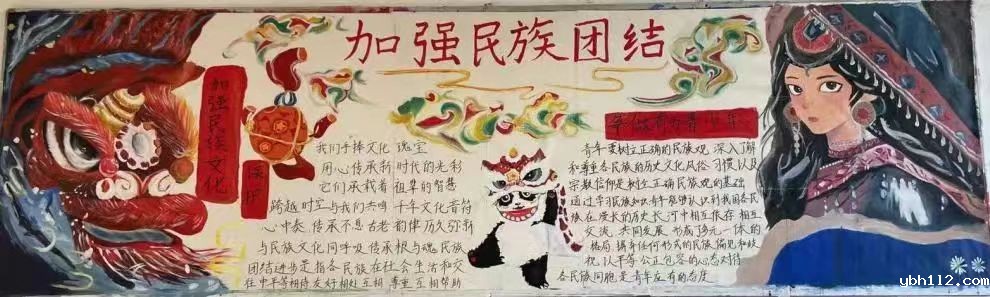 加强民族团结
加强民族文化
保护
争做有为青少年
我们手捧文化瑰宝
用心传承新时代的光彩
它们承载着祖辈的智慧
跨越时空与我们共鸣千年文化音符
心中奏传承不息古老韵律历久弥新
与民族文化同呼吸传承根与魂民族
团结进步是指各民族在社会生活和交
在中平等相待友好相处互相尊重互相帮助
青年要树立正确的民族观深入了解
和尊重各民族的历史文化风俗习惯以及
宗教信仰是树立正确民族观的基础
通过学习民族知识青年能够认识到我国各民
族在漫长的历史长河中相互依存相互
交流共同发展形成多元一体的
格局摒弃任何形式的民族偏见和歧
视以平等公正包容的心态对待
各民族同胞是青年应有的态度
ybh112.com